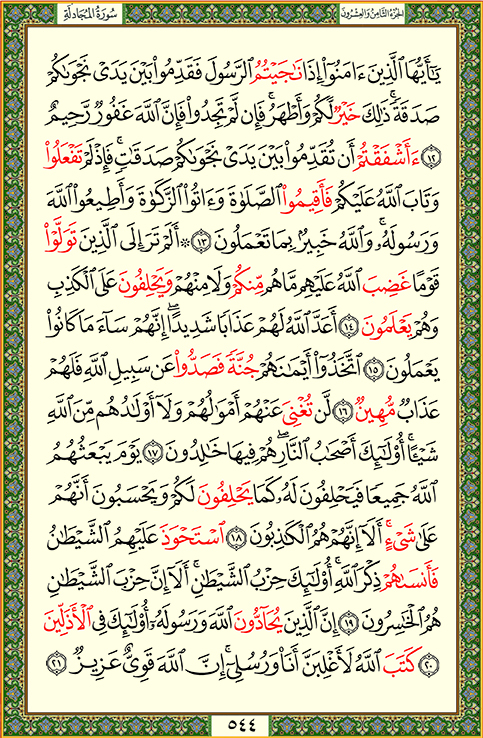 الجزء الثامن والعشرون
سورة المجادلة
يَٰٓأَيُّهَا ٱلَّذِينَ ءَامَنُوٓا۟ إِذَا نَٰجَيْتُمُ ٱلرَّسُولَ فَقَدِّمُوا۟ بَيْنَ يَدَىْ نَجْوَىٰكُمْ
صَدَقَةً ۚ ذَٰلِكَ خَيْرٌ لَّكُمْ وَأَطْهَرُ ۚ فَإِن لَّمْ تَجِدُوا۟ فَإِنَّ ٱللَّهَ غَفُورٌ رَّحِيمٌ
١٢ ءَأَشْفَقْتُمْ أَن تُقَدِّمُوا۟ بَيْنَ يَدَىْ نَجْوَىٰكُمْ صَدَقَٰتٍ ۚ فَإِذْ لَمْ تَفْعَلُوا۟
وَتَابَ ٱللَّهُ عَلَيْكُمْ فَأَقِيمُوا۟ ٱلصَّلَوٰةَ وَءَاتُوا۟ ٱلزَّكَوٰةَ وَأَطِيعُوا۟ ٱللَّهَ
وَرَسُولَهُۥ ۚ وَٱللَّهُ خَبِيرٌۢ بِمَا تَعْمَلُونَ ١٣ ۞ أَلَمْ تَرَ إِلَى ٱلَّذِينَ تَوَلَّوْا۟
قَوْمًا غَضِبَ ٱللَّهُ عَلَيْهِم مَّا هُم مِّنكُمْ وَلَا مِنْهُمْ وَيَحْلِفُونَ عَلَى ٱلْكَذِبِ
وَهُمْ يَعْلَمُونَ ١٤ أَعَدَّ ٱللَّهُ لَهُمْ عَذَابًا شَدِيدًا ۖ إِنَّهُمْ سَآءَ مَا كَانُوا۟
يَعْمَلُونَ ١٥ ٱتَّخَذُوٓا۟ أَيْمَٰنَهُمْ جُنَّةً فَصَدُّوا۟ عَن سَبِيلِ ٱللَّهِ فَلَهُمْ
عَذَابٌ مُّهِينٌ ١٦ لَّن تُغْنِىَ عَنْهُمْ أَمْوَٰلُهُمْ وَلَآ أَوْلَٰدُهُم مِّنَ ٱللَّهِ
شَيْـًٔا ۚ أُو۟لَٰٓئِكَ أَصْحَٰبُ ٱلنَّارِ ۖ هُمْ فِيهَا خَٰلِدُونَ ١٧ يَوْمَ يَبْعَثُهُمُ
ٱللَّهُ جَمِيعًا فَيَحْلِفُونَ لَهُۥ كَمَا يَحْلِفُونَ لَكُمْ ۖ وَيَحْسَبُونَ أَنَّهُمْ
عَلَىٰ شَىْءٍ ۚ أَلَآ إِنَّهُمْ هُمُ ٱلْكَٰذِبُونَ ١٨ ٱسْتَحْوَذَ عَلَيْهِمُ ٱلشَّيْطَٰنُ
فَأَنسَىٰهُمْ ذِكْرَ ٱللَّهِ ۚ أُو۟لَٰٓئِكَ حِزْبُ ٱلشَّيْطَٰنِ ۚ أَلَآ إِنَّ حِزْبَ ٱلشَّيْطَٰنِ
هُمُ ٱلْخَٰسِرُونَ ١٩ إِنَّ ٱلَّذِينَ يُحَآدُّونَ ٱللَّهَ وَرَسُولَهُۥٓ أُو۟لَٰٓئِكَ فِى ٱلْأَذَلِّينَ
٢٠ كَتَبَ ٱللَّهُ لَأَغْلِبَنَّ أَنَا۠ وَرُسُلِىٓ ۚ إِنَّ ٱللَّهَ قَوِىٌّ عَزِيزٌ ٢١
٥٤٤